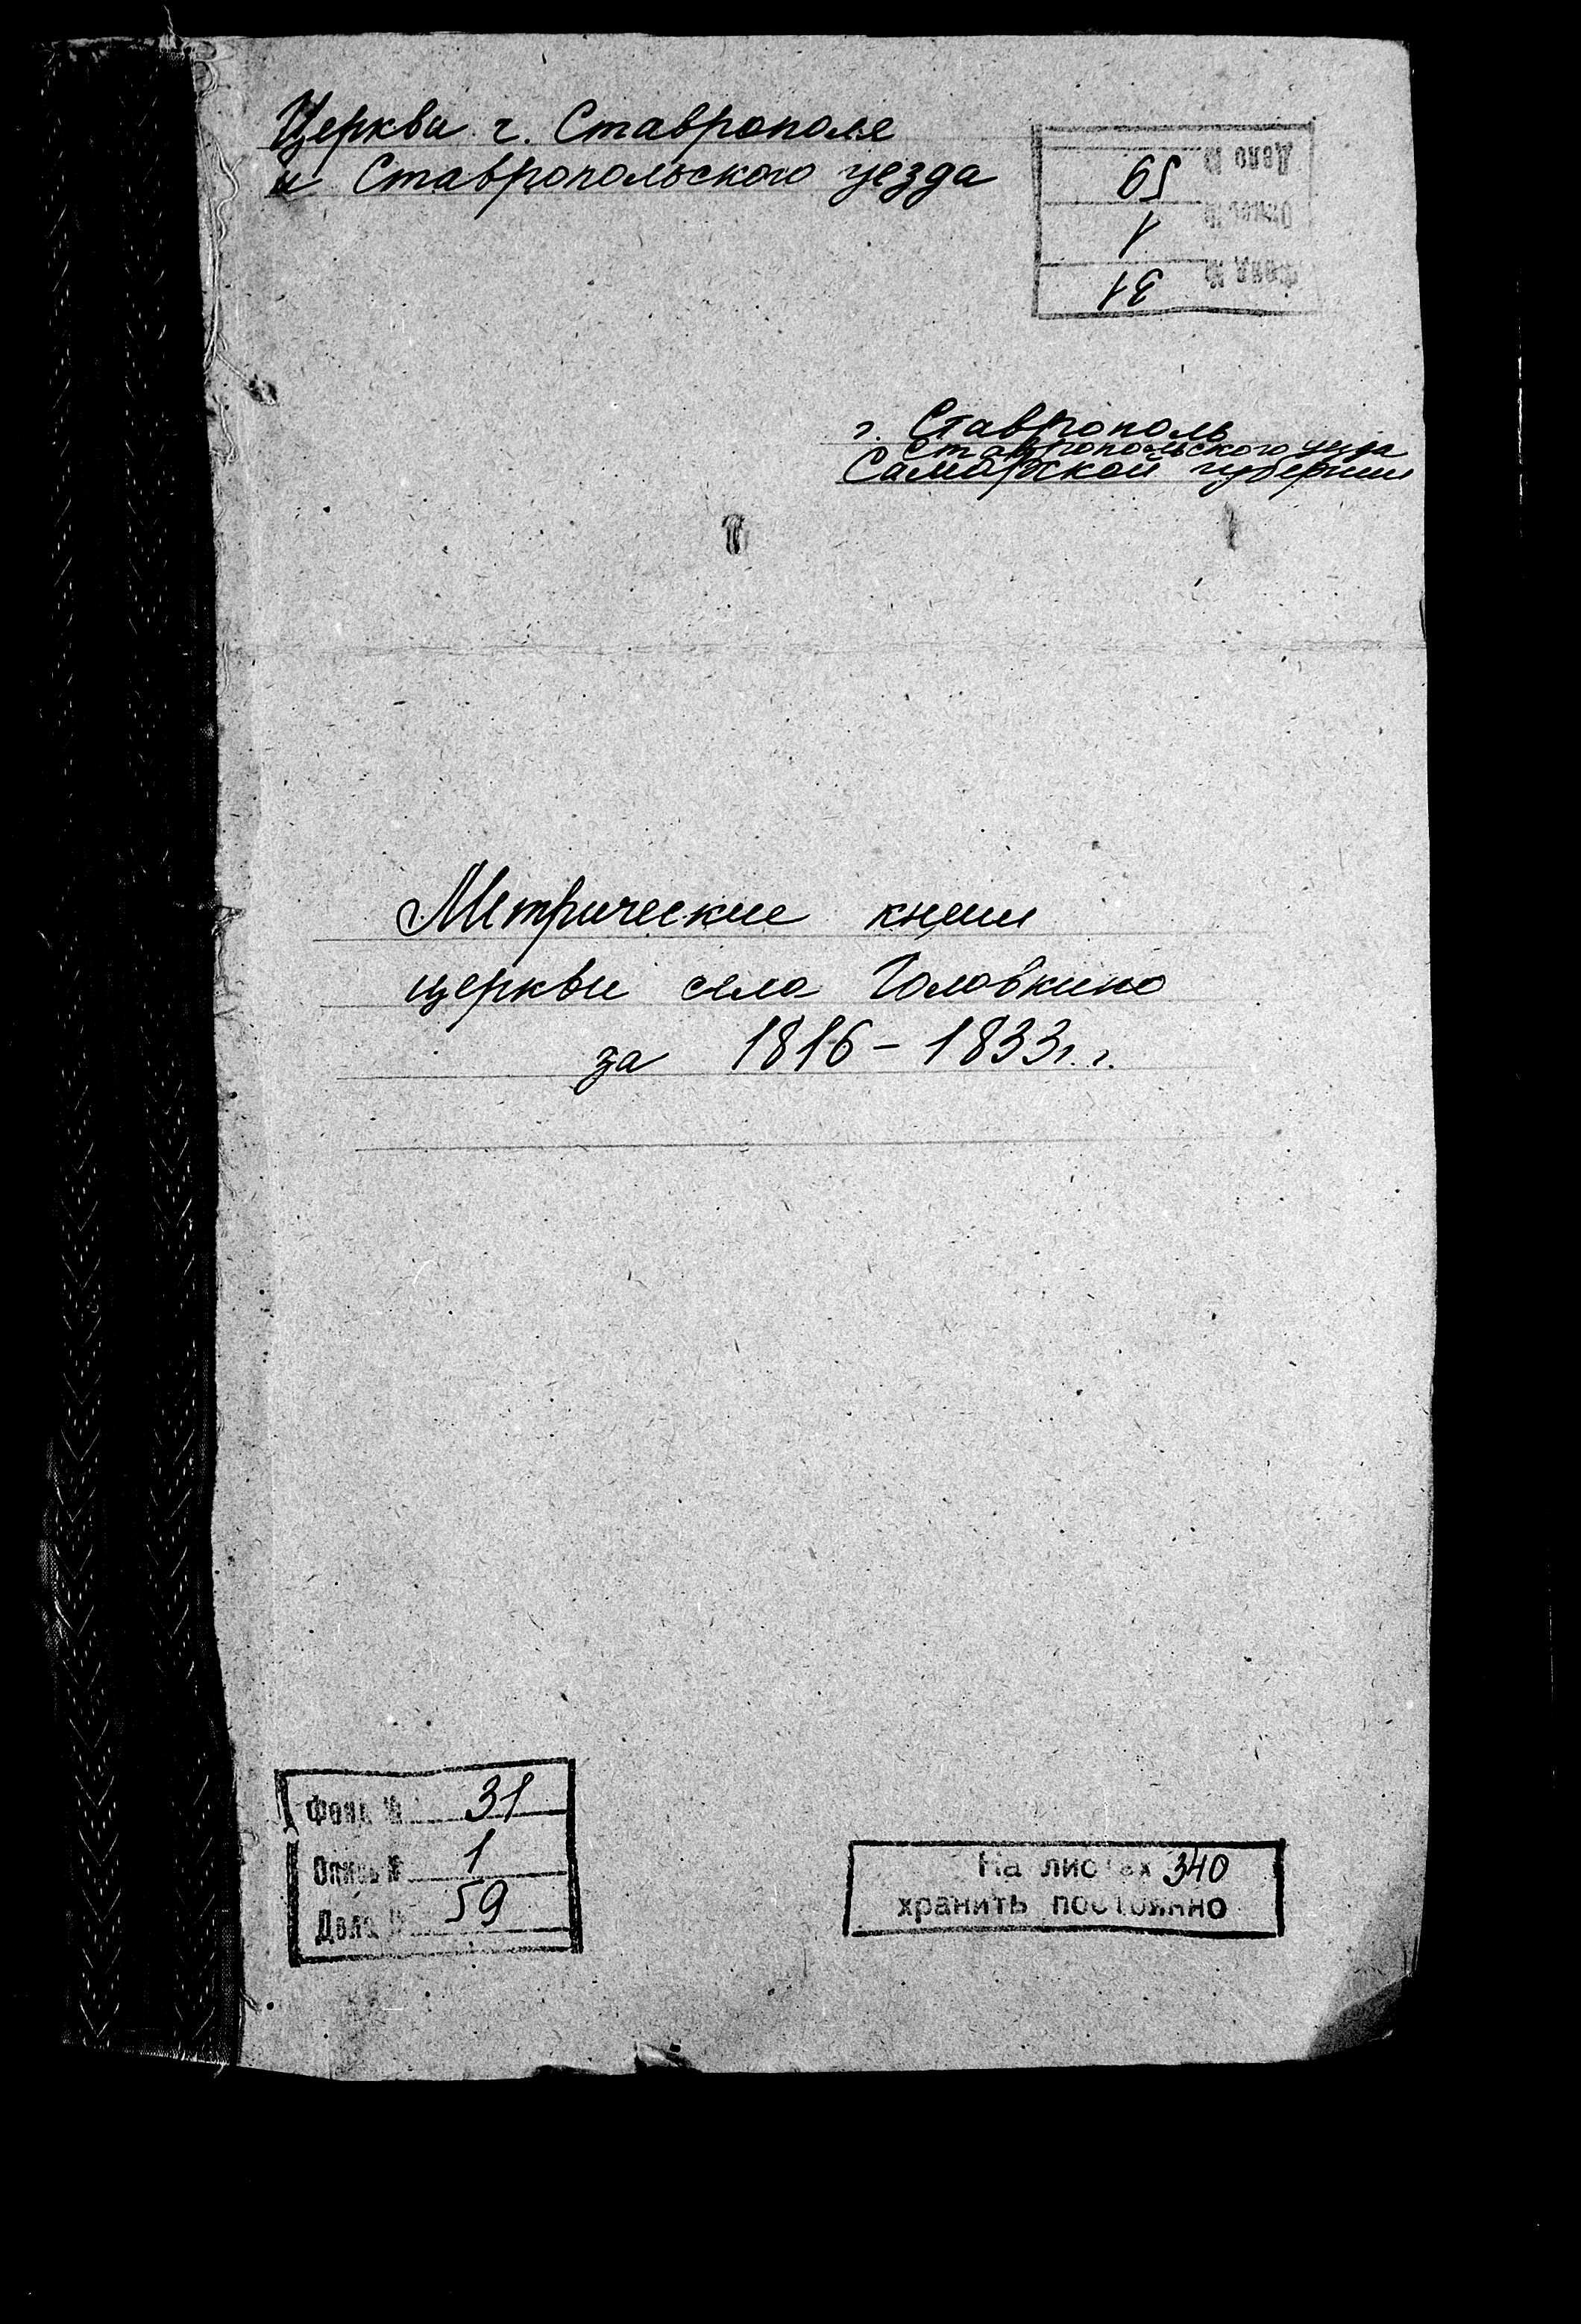 Церкви г. Ставрополя
и Ставропольского уезда
Дело №
59
Опись №
1
Фонд №
31
г. Ставрополь
Ставропольского уезда
Самарской губернии
Метрические книги
церкви села Головкино
за 1816 - 1833г.г.
Фонд № 31
Опись № 1
Дело № 59
На листах 340
хранить постоянно